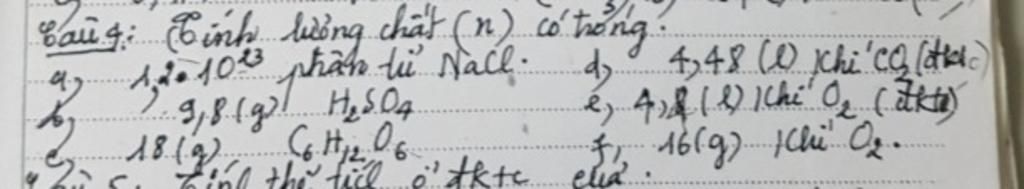 Câu 4: Tính lượng chất (n) có trong:
a, 1,2.10²³ phân tử NaCl. d, 4,48 (l) khí CO₂ (đktc)
b, 9,8 (g) H₂SO₄ e, (l) khí O₂ (đktc)
c, 18 (g) C₆H₁₂O₆ f, 16 (g) khí O₂.
Câu 5: Tính thể tích ở đktc của: